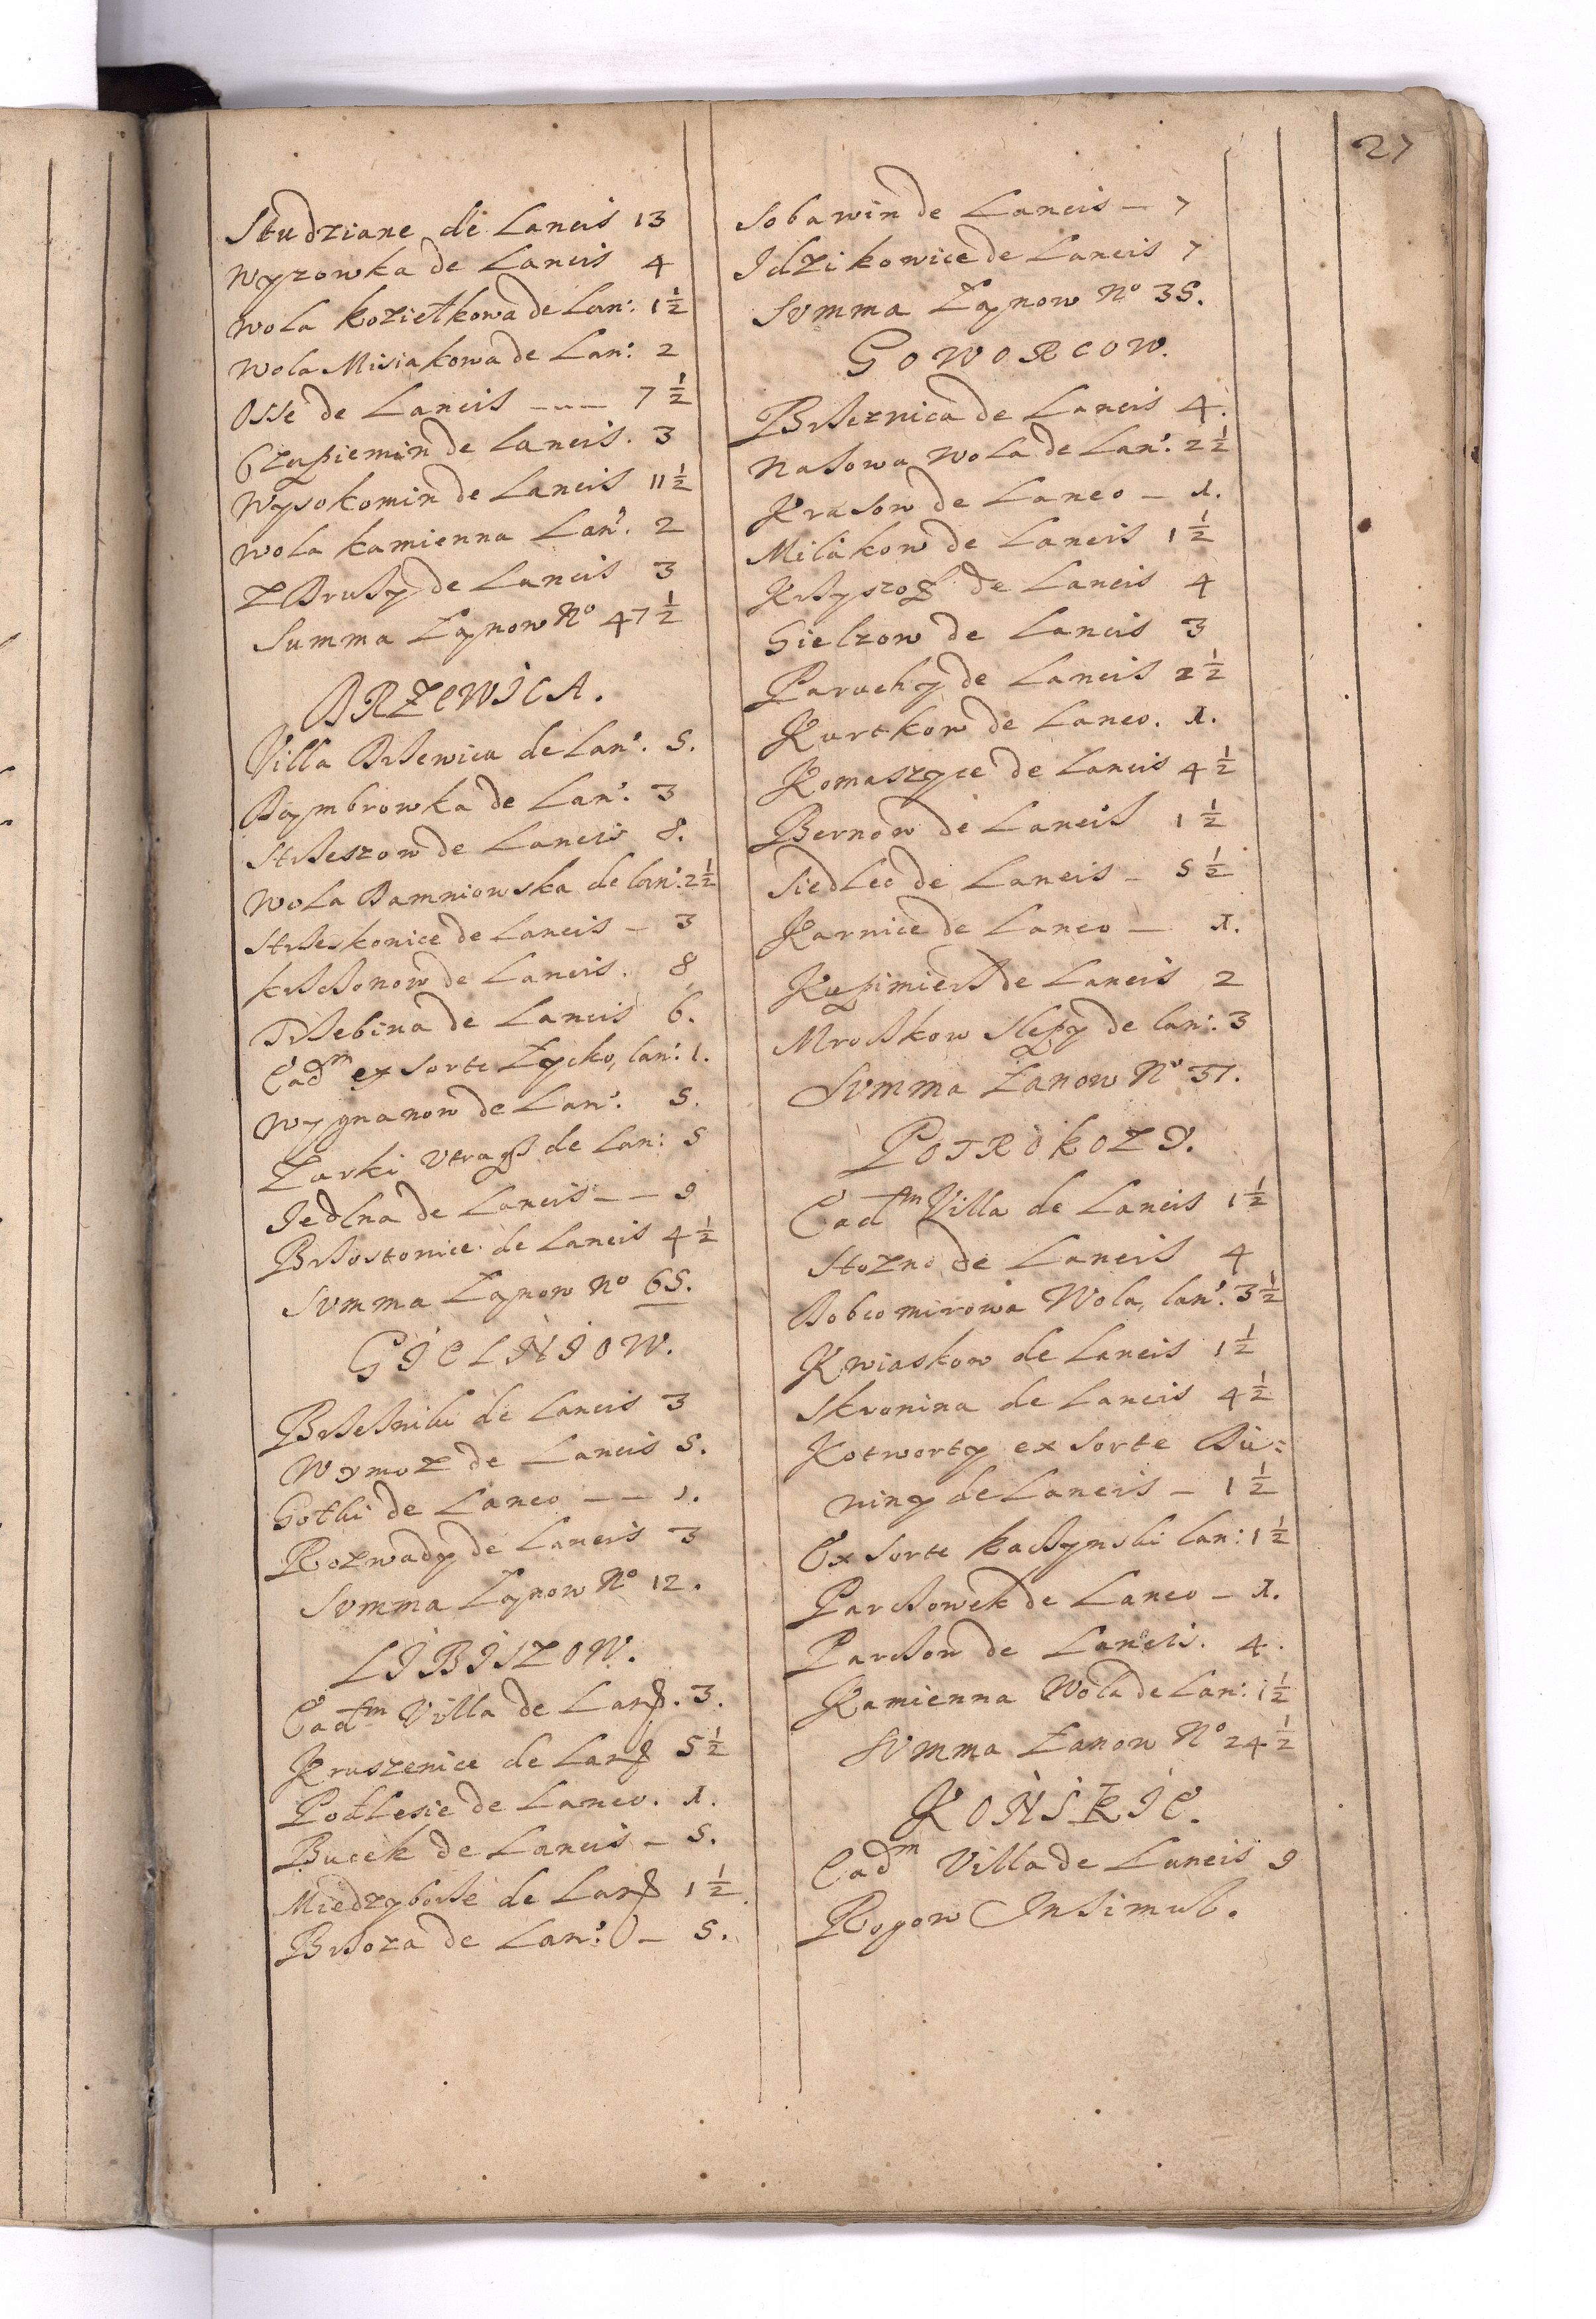 27
Studziane de Laneis 13
Wyzowka de Laneis 4
Wola Kozietkowa de Lan: 1 1/2
Wola Misiakowa de Lan: 2
Osse de Laneis --- 7 1/2
de Laneis. 3
Wysokomin de Laneis 11 1/2
Wola Kamienna Lan: 2
de Laneis 3
Summa Łanow No 47 1/2
DRZEWICA.
Villa Drzewica de Lan: 5.
Dąmbrowka de Lan: 3
Strzeszow de Laneis 8.
Wola Damniowska de Lan: 2 1/2
Strzeskonice de Laneis - 3
Krzczonow de Laneis. 8
Trzebina de Laneis 6.
Eadm ex Sorte Zycko, Lan: 1.
Wygnanow de Lan: 5.
Zarki de Lan: 5
Jedlna de Laneis -- 9
Brzostowice de Laneis 4 1/2
Svmma Łanow No 65.
GIELNIOW.
Brzezinki de Laneis 3
de Laneis 5.
Gotki de Laneo -- 1.
Rozwady de Laneis 3
Svmma Łanow No 12.
LIBISZOW.
Eadm Villa de Lan. 3.
Kruszenice de Lan 5 1/2
Podlesie de Laneo. 1.
Bucek de Laneis - 5.
Miedzyborze de Lan 1 1/2
Brzoza de Lan: - 5.
Sobawin de Laneis - 7
Idzikowice de Laneis 7
Svmma Łanow No 35.
GOWORCOW.
Brzeznica de Laneis 4.
Nasowa Wola de Lan: 2 1/2
Krasow de Laneo - 1.
Milakow de Laneis 1 1/2
de Laneis 4
Gielzow de Laneis 3
Paruchy de Laneis 2 1/2
Kurtkow de Laneo. 1.
Komaszyce de Laneis 4 1/2
Bernow de Laneis 1 1/2
Siedlec de Laneis - 5 1/2
Karnice de Laneo - 1.
de Laneis 2
Mroczkow Slepy de Lan: 3
Svmma Łanow No 37.
POTROKOZY.
Eadm Villa de Laneis 1 1/2
Stozno de Laneis 4
Dobcomirowa Wola, Lan: 3 1/2
Kwiaskow de Laneis 1 1/2
Skronina de Laneis 4 1/2
Kotworty ex Sorte Du:
niny de Laneis - 1 1/2
Ex Sorte Kaczynski Lan: 1 1/2
Parczowek de Laneo - 1.
Parczow de Laneis. 4.
Kamienna Wola de Lan: 1 1/2
Svmma Łanow No 24 1/2
KONSKIE.
Eadm Villa de Laneis 9
Rogow Insimul.